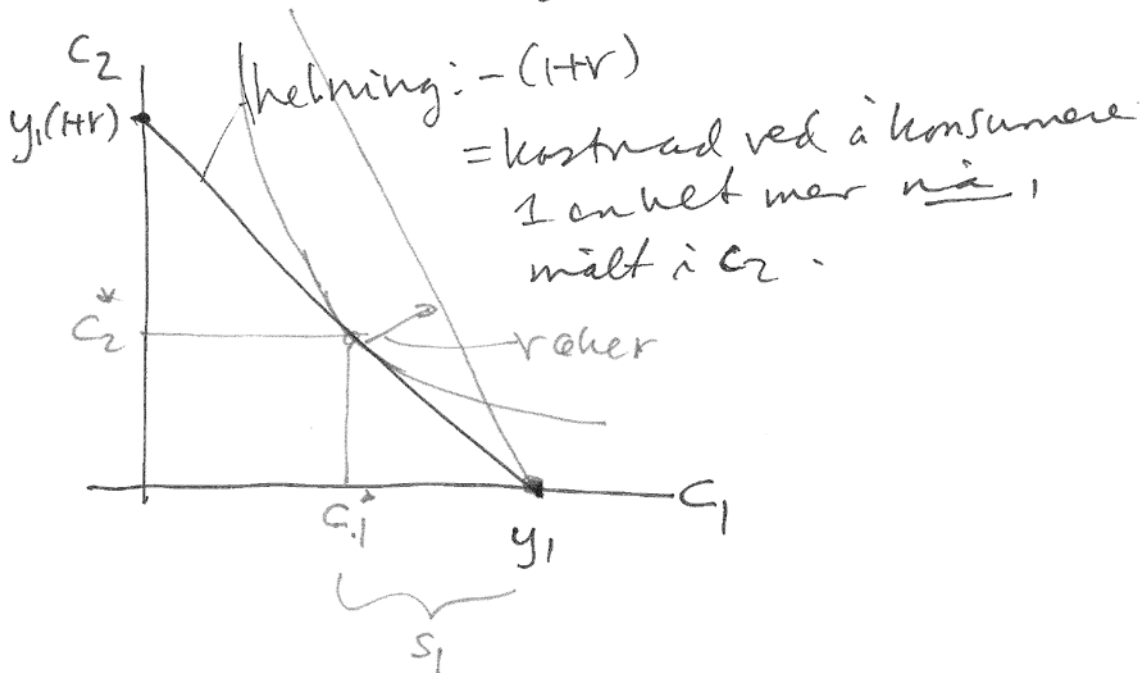 C2
helning: -(1+r)
y1(1+r)
= kostnad ved å konsumere
1 enhet mer nå,
målt i c2.
C2*
r øker
C1*
y1
C1
S1